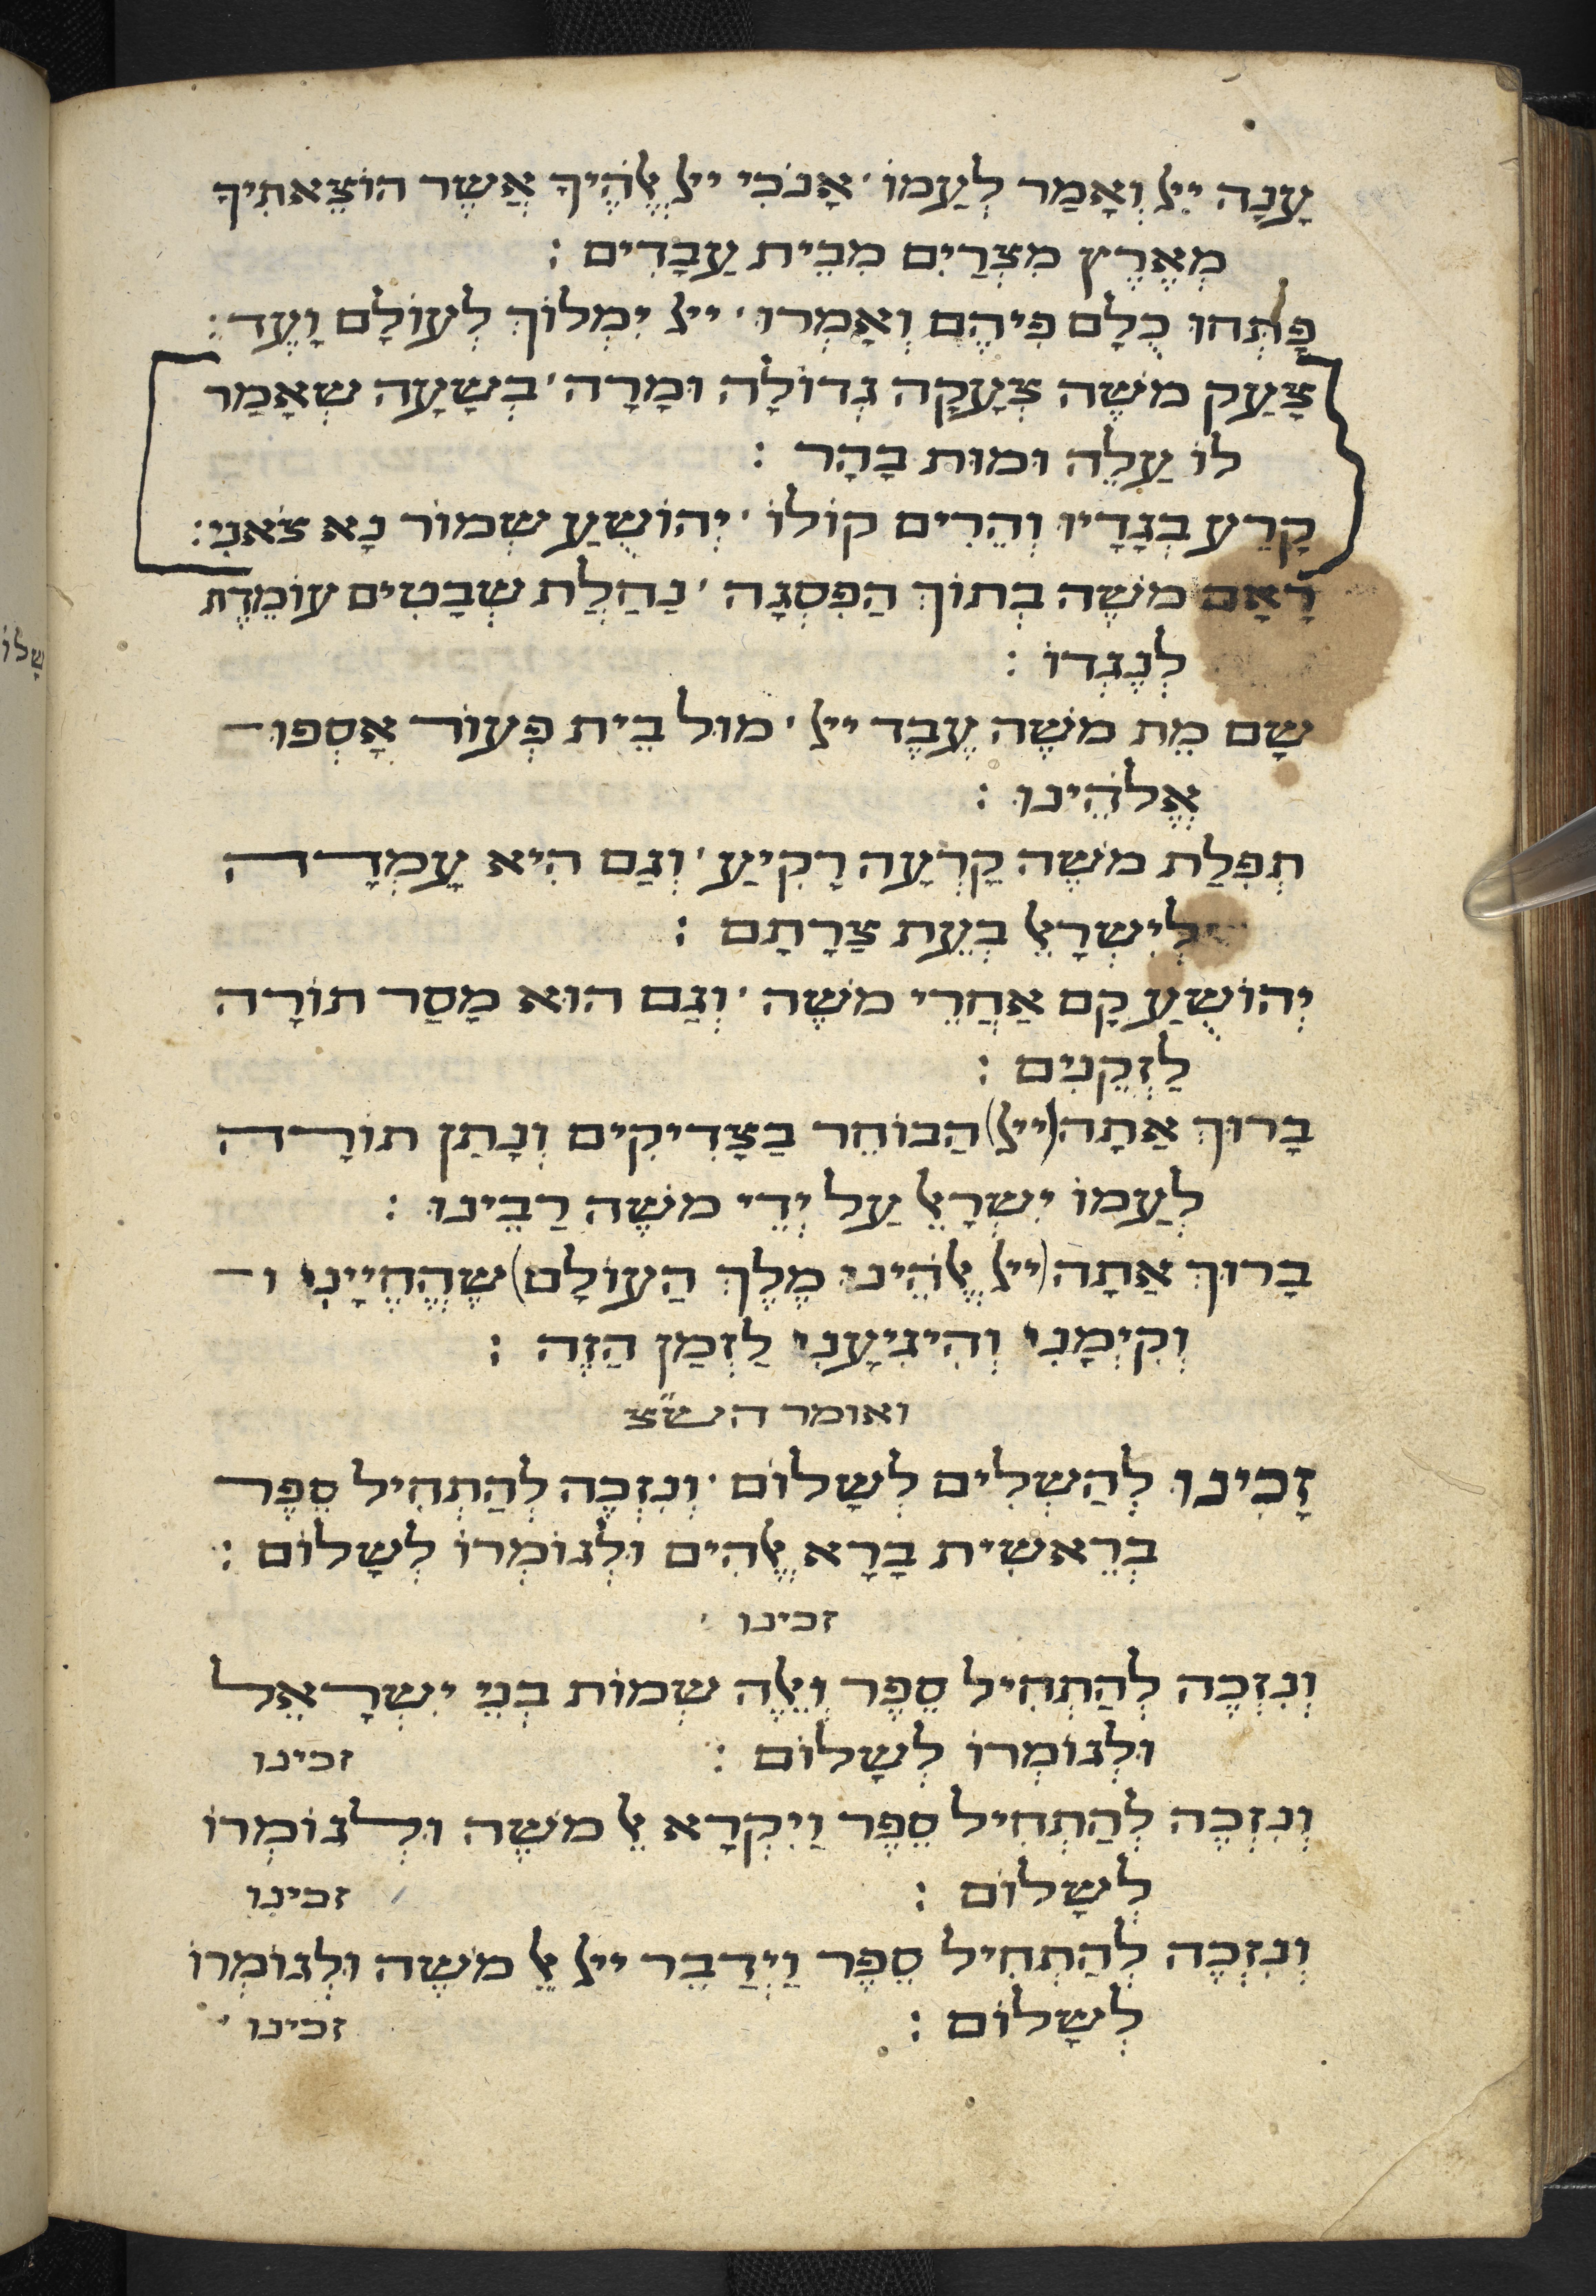 עָנָה יְיָ וְאָמַר לְעַמּוֹ ׳ אָנֹכִי ייָ אֱלֹהֶיךָ אֲשֶׁר הוֹצֵאתִיךָ
מֵאֶרֶץ מִצְרַיִם מִבֵּית עֲבָדִים :
פָּתְחוּ כֻלָּם פִּיהֶם וְאָמְרוּ ׳ ייָ יִמְלוֹךְ לְעוֹלָם וָעֶד :
צָעַק מֹשֶׁה צְעָקָה גְדוֹלָה וּמָרָה ׳ בְּשָׁעָה שֶׁאָמַר
לוֹ עֲלֵה וּמוּת בָּהָר :
קָרַע בְּגָדָיו וְהֵרִים קוֹלוֹ ׳ יְהוֹשֻׁעַ שְׁמוֹר נָא צֹאנִי :
רָאָם מֹשֶׁה בְּתוֹךְ הַפִּסְגָּה ׳ נַחֲלַת שְׁבָטִים עוֹמֶדֶת
לְנֶגְדּוֹ :
שָׁם מֵת מֹשֶׁה עֶבֶד ייָ ׳ מוּל בֵּית פְּעוֹר אֲסָפוֹ
אֱלֹהֵינוּ :
תְּפִלַּת מֹשֶׁה קָרְעָה רָקִיעַ ׳ וְגַם הִיא עָמְדָה
לְיִשְׂרָאֵל בְּעֵת צָרָתָם :
יְהוֹשֻׁעַ קָם אַחֲרֵי מֹשֶׁה ׳ וְגַם הוּא מָסַר תּוֹרָה
לַזְּקֵנִים :
בָּרוּךְ אַתָּה (ייָ) הַבּוֹחֵר בַּצַּדִּיקִים וְנָתַן תּוֹרָה
לְעַמּוֹ יִשְׂרָאֵל עַל יְדֵי מֹשֶׁה רַבֵּינוּ :
בָּרוּךְ אַתָּה (ייָ אֱלֹהֵינוּ מֶלֶךְ הָעוֹלָם) שֶׁהֶחֱיָינִי ו
וְקִיְּמָנִי וְהִיגִיעָנִי לַזְּמַן הַזֶּה :
ואומר הש״צ
זָכִינוּ לְהַשְׁלִים לְשָׁלוֹם ׳ וְנִזְכֶּה לְהַתְחִיל סֵפֶר
בְּרֵאשִׁית בָּרָא אֱלֹהִים וּלְגוֹמְרוֹ לְשָׁלוֹם :
זכינו ׳
וְנִזְכֶּה לְהַתְחִיל סֵפֶר וְאֵלֶּה שְׁמוֹת בְּנֵי יִשְׂרָאֵל
וּלְגוֹמְרוֹ לְשָׁלוֹם : זכינו
וְנִזְכֶּה לְהַתְחִיל סֵפֶר וַיִּקְרָא אֶל מֹשֶׁה וּלְגוֹמְרוֹ
לְשָׁלוֹם : זכינו
וְנִזְכֶּה לְהַתְחִיל סֵפֶר וַיְדַבֵּר ייָ אֶל מֹשֶׁה וּלְגוֹמְרוֹ
לְשָׁלוֹם : זכינו ׳
שָׁלוֹ